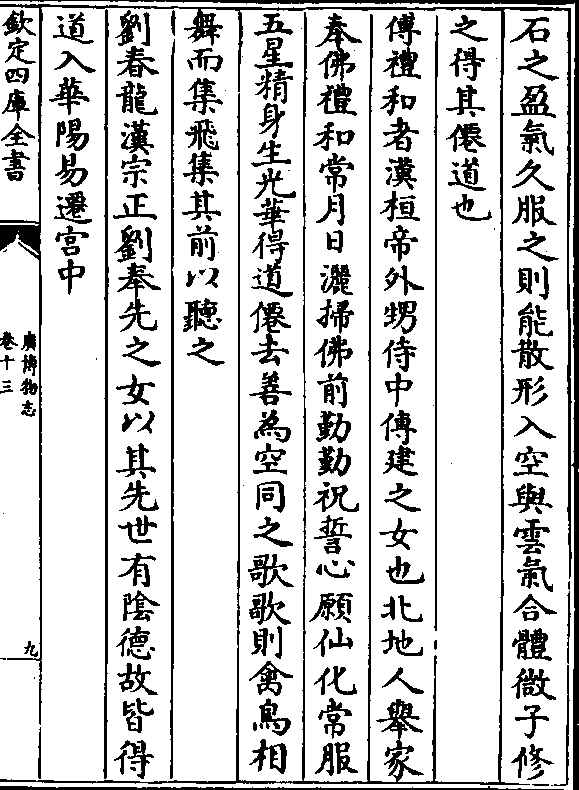 石之盈氣久服之則能散形入空與雲氣合體微子修
之得其僊道也
傅禮和者漢桓帝外甥侍中傅建之女也北地人舉家
奉佛禮和常月日灑掃佛前勤勤祝誓心願仙化常服
五星精身生光華得道僊去善為空同之歌歌則禽鳥相
舞而集飛集其前以聽之
劉春龍漢宗正劉奉先之女以其先世有陰德故皆得
道入華陽易遷宮中
欽定四庫全書
廣博物志
卷十三
九